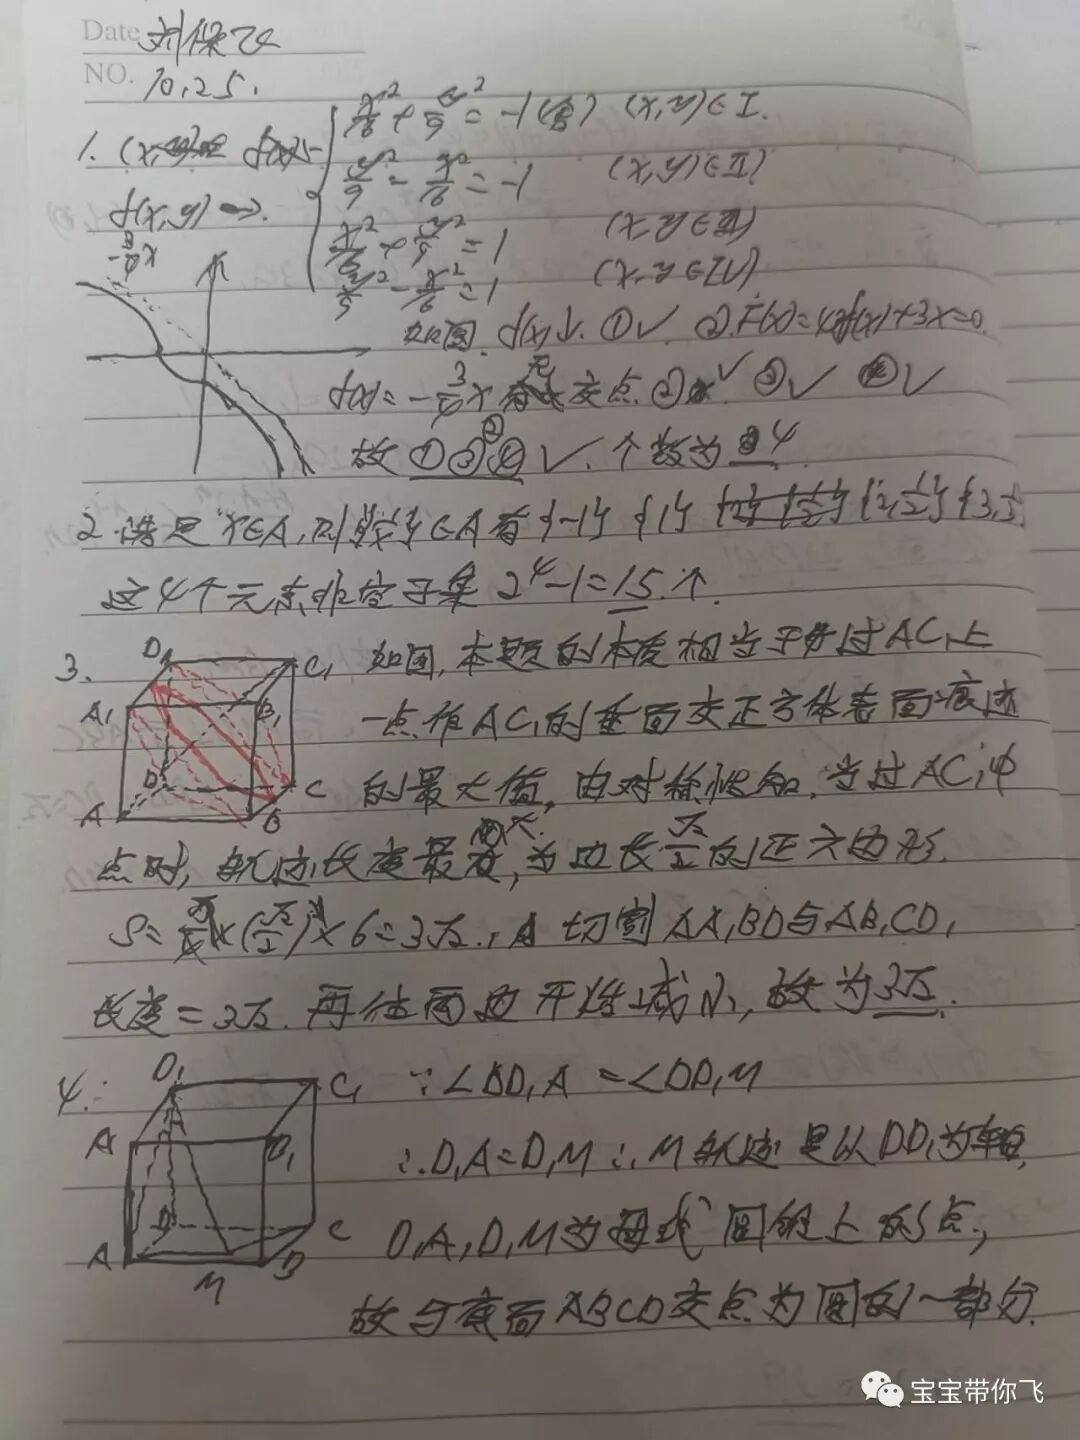 Date 刘保飞
NO. 10.25.
1. f(x,y)→
x²/16 + y²/9 = -1 (舍) (x,y)∈I.
y²/9 - x²/16 = -1 (x,y)∈II
x²/16 + y²/9 = 1 (x,y∈III)
y²/9 - x²/16 = 1 (x,y∈IV)
如图. f(x)↓. ①✓ ②F(x)=4f(x)+3x=0.
f(x)=-3/4x 无交点.②✓ ③✓ ④✓
故 ①③②④ ✓. 个数为 4
2. 满足 x∈A, 则 ∈A 有 {-1} {1} {2,1/2} {3,1/3}
这4个元素非空子集 2⁴-1=15.个.
3. D₁ C₁ A₁ B₁ D C A B
如图,本题的本质相当于过AC₁上
一点作AC₁的垂面交正方体表面痕迹
的最大值,由对称性知,当过AC₁中
点时,轨迹长度最大,为边长√2/2的正六边形.
×6=3√2., 切割 AA₁BD与AB₁CD₁
长度=3√2.再往两边开始减小,故为3√2.
4. D₁ C₁ A B₁ D C A B M
∵∠DD₁A=∠DD₁M
∴D₁A=D₁M ∴M轨迹是以DD₁为轴,
D₁A,D₁M为母线圆锥上的点,
故与底面ABCD交点为圆的一部分.
宝宝带你飞